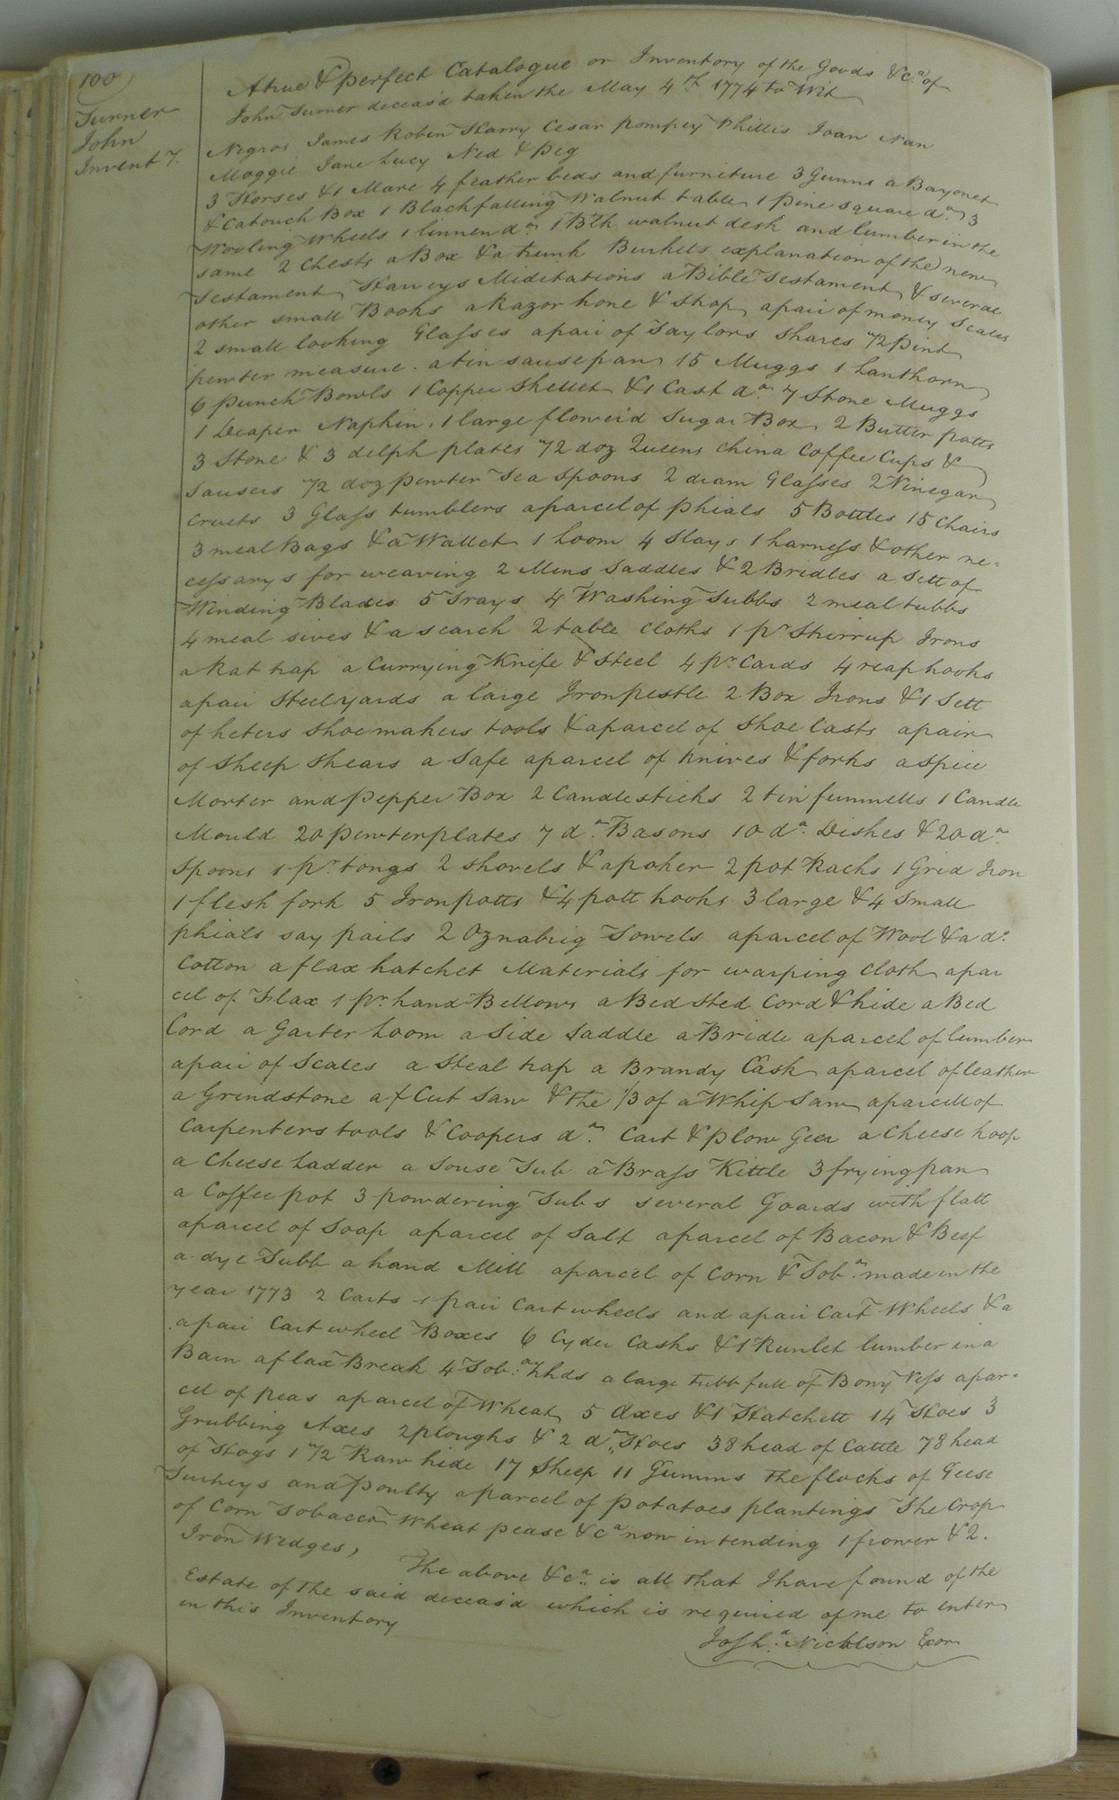 100
Turner
John
Inventy.
A true & perfect Catalogue or Inventory of the Goods &ca. of
John Turner deceas'd taken the May 4th 1774 to Wit
Negros James Robin Harry Cesar Pompey Phillis Joan Nan
Moggie Jane Lucy Ned & Peg
3 Horses & 1 Mare 4 feather beds and furniture 3 Gunns a Bayonet
& Catouch Box 1 Black falling Walnut table 1 pine square do. 3
Wooling Wheels 1 linnen do. 1 Blk walnut desk and lumber in the
same 2 Chests a Box & a trunk Burkets explanation of the new
Testament Harveys Miditations a Bible Testament & several
other small Books a Razor hone & Shop a pair of money Scales
2 small looking Glasses a pair of Taylors Shares 1/2 pint
pewter measure. a tin sausepan 15 Muggs 1 Lanthorn
6 Punch Bowls 1 Copper Skellet & 1 Cast do. 7 Stone Muggs
1 Deaper Napkin. 1 large flower'd Sugar Box 2 Butter potts
3 Stone & 3 delph plates 1/2 doz Queens China Coffee Cups &
Sausers 1/2 doz pewter Tea Spoons 2 dram Glasses 2 Vinegar
Cruets 3 Glass tumblers a parcel of phials 5 Bottles 15 Chairs
3 meal Bags & a Wallet 1 Loom 4 Slays 1 harness & other ne=
cessarys for weaving 2 Mens Saddles & 2 Bridles a Sett of
Winding Blades 5 Trays 4 Washing Tubbs 2 meal tubbs
4 meal sives & a search 2 table cloths 1 pr Stirrup Irons
a Rat trap a Currying Knife & Steel 4 pr. Cards 4 reaphooks
a pair Steelyards a large Iron pestle 2 Box Irons & 1 Sett
of heters Shoemakers tools & a parcel of Shoe lasts a pair
of Sheep Shears a Safe a parcel of knives & forks a Spice
Morter and Pepper Box 2 Candlesticks 2 tin funnells 1 Candle
Mould 20 pewter plates 7 do. Basons 10 do. Dishes & 20 do.
Spoons 1 pr. tongs 2 shovels & a poker 2 pot Racks 1 Grid Iron
1 flesh fork 5 Iron potts & 4 pott hooks 3 large & 4 Small
phials say pails 2 Oznabrig Towels a parcel of Wool & a do.
Cotton a flax hatchet Materials for warping Cloth a par
cel of Flax 1 pr. hand Bellows a Bed Sted Cord & hide a Bed
Cord a Garter Loom a Side Saddle a Bridle a parcel of lumber
a pair of Scales a Steal trap a Brandy Cask a parcel of leather
a Grindstone a f Cut Saw & the 1/3 of a Whip Saw a parcell of
Carpenters tools & Coopers do. Cart & Plow Geer a Cheese hoop
a Cheese Ladder a Souse Tub a Brass Kittle 3 frying pan
a Coffee pot 3 powdering Tubs several Goards with flatt
a parcel of Soap a parcel of Salt a parcel of Bacon & Beef
a dye Tubb a hand Mill a parcel of Corn & Tobo. made in the
year 1773 2 Carts 1 pair Cart wheels and a pair Cart Wheels & a
a pair Cart wheel Boxes 6 Cyder Casks & 1 Runlet lumber in a
Barn a flax Break 4 Tobo. hhds a large tubb full of Bony Ness a par=
cel of peas a parcel of Wheat 5 Axes & 1 Hatchett 14 Hoes 3
Grubbing Axes 2 ploughs & 2 do. Hoes 38 head of Cattle 78 head
of Hogs 1 1/2 Raw hide 17 Sheep 11 Gumms the flocks of Geese
Turkeys and Poulty a parcel of Potatoes plantings The Crop
of Corn Tobacco Wheat pease &ca now in tending 1 frower & 2.
Iron Wedges,
The above &ca. is all that I have found of the
Estate of the said deceas'd which is required of me to enter
in this Inventory
Josha. Nicklson Exor.